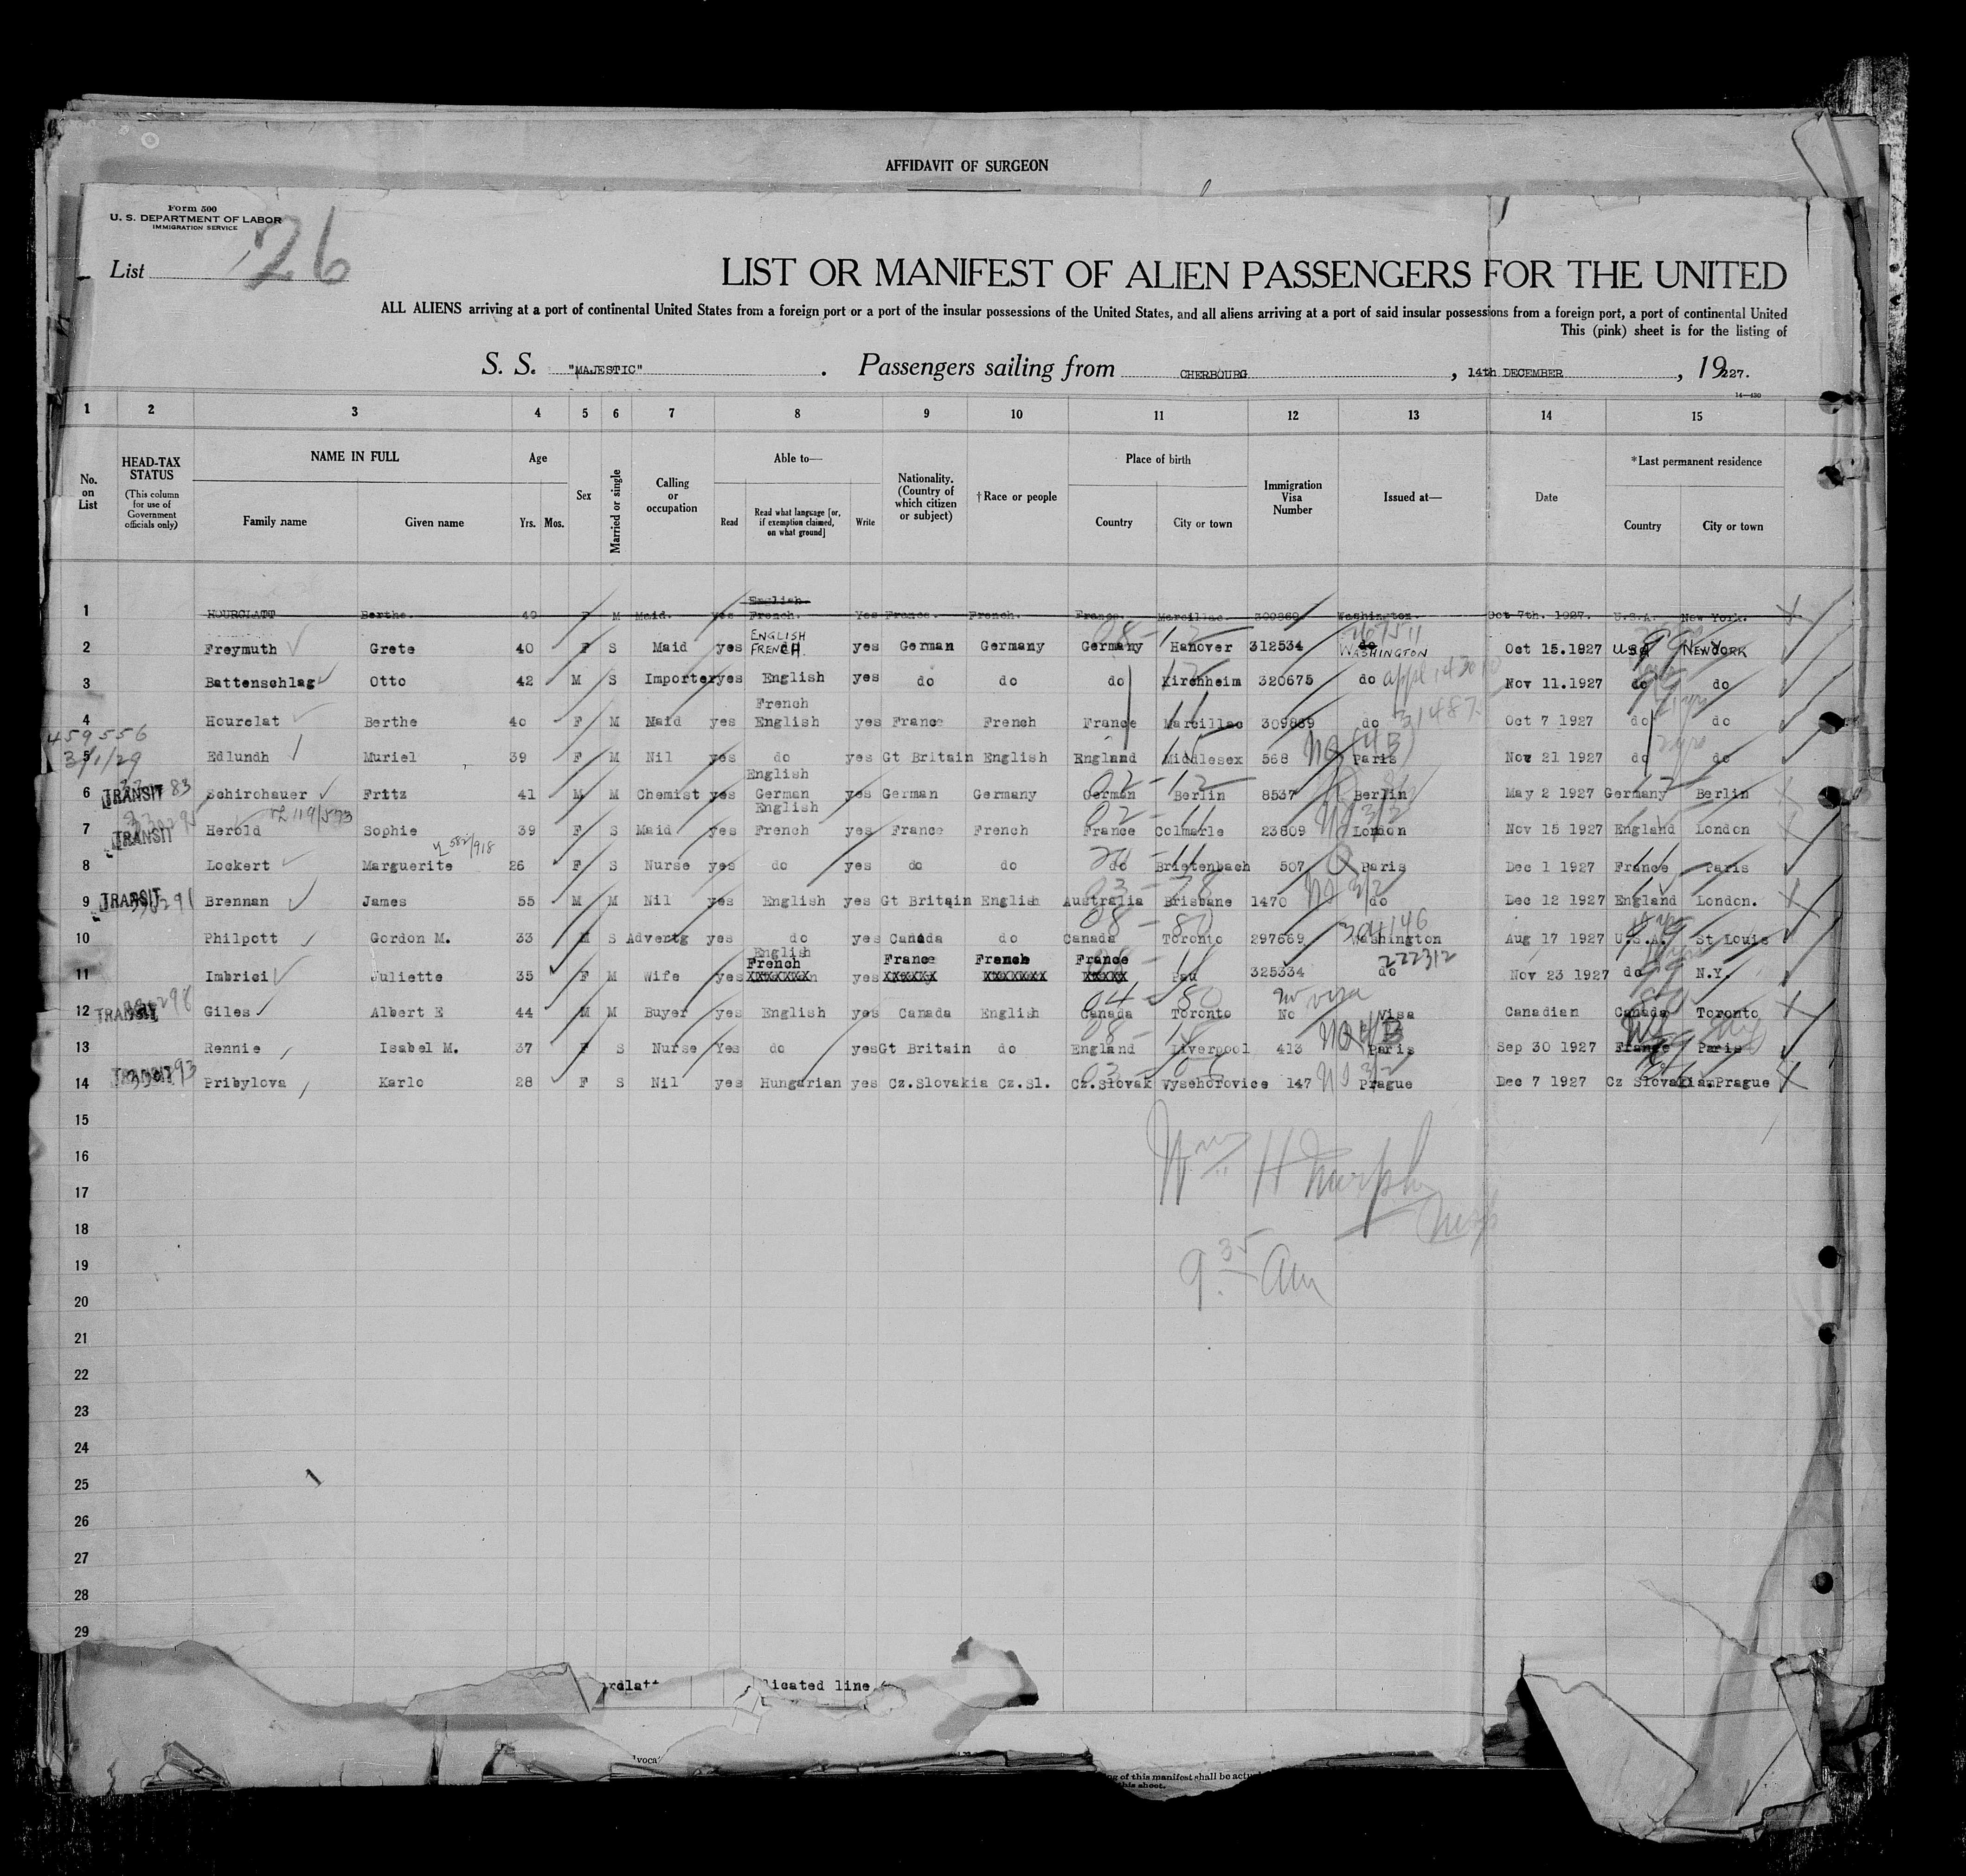 AFFIDAVIT OF SURGEON
Form 500
U. S. DEPARTMENT OF LABOR
IMMIGRATION SERVICE
List 26
LIST OR MANIFEST OF ALIEN PASSENGERS FOR THE UNITED
ALL ALIENS arriving at a port of continental United States from a foreign port or a port of the insular possessions of the United States, and all aliens arriving at a port of said insular possessions from a foreign port, a port of continental United
This (pink) sheet is for the listing of
S. S. "MAJESTIC" . Passengers sailing from CHERBOURG , 14th DECEMBER , 19227.
14—430
1 2 3 4 5 6 7 8 9 10 11 12 13 14 15
No. on List
HEAD-TAX STATUS (This column for use of Government officials only)
NAME IN FULL Family name Given name
Age Yrs. Mos.
Sex
Married or single
Calling or occupation
Able to— Read Read what language [or, if exemption claimed, on what ground] Write
Nationality. (Country of which citizen or subject)
†Race or people
Place of birth Country City or town
Immigration Visa Number
Issued at—
Date
*Last permanent residence Country City or town
English
1 HOURCLATT Berthe. 40 F M Maid. yes French. Yes France. French. France. Marcillac. 309869 Washington. Oct 7th. 1927. U.S.A. New York.
ENGLISH
2 Freymuth Grete 40 F S Maid yes FRENCH. yes German Germany Germany Hanover 312534 WASHINGTON Oct 15.1927 USA NEWYORK
3 Battenschlag Otto 42 M S Importer yes English yes do do do Kirchheim 320675 do Nov 11.1927 do do
French
4 Hourclat Berthe 40 F M Maid yes English yes France French France Marcillac 309869 do Oct 7 1927 do do
459556
3/1/29
5 Edlundh Muriel 39 F M Nil yes do yes Gt Britain English England Middlesex 568 Paris Nov 21 1927 do do
English
6 TRANSIT Schirchauer Fritz 41 M M Chemist yes German yes German Germany German Berlin 8537 Berlin May 2 1927 Germany Berlin
English
7 TRANSIT Herold Sophie 39 F S Maid yes French yes France French France Colmarle 23809 London Nov 15 1927 England London
8 Lockert Marguerite 26 F S Nurse yes do yes do do do Brietenbach 507 Paris Dec 1 1927 France Paris
9 TRANSIT Brennan James 55 M M Nil yes English yes Gt Britain English Australia Brisbane 1470 do Dec 12 1927 England London.
10 Philpott Gordon M. 33 M S Advertg yes do yes Canada do Canada Toronto 297669 Washington Aug 17 1927 U.S.A. St Louis
English
French France French France
11 Imbrici Juliette 35 F M Wife yes yes Pau 325334 do Nov 23 1927 do N.Y.
12 TRANSIT Giles Albert E 44 M M Buyer yes English yes Canada English Canada Toronto No visa Canadian Canada Toronto
13 Rennie Isabel M. 37 F S Nurse Yes do yes Gt Britain do England Liverpool 413 Paris Sep 30 1927 France Paris
14 TRANSIT Pribylova Karlo 28 F S Nil yes Hungarian yes Cz.Slovakia Cz.Sl. Cz.Slovak Vysehorovice 147 Prague Dec 7 1927 Cz Slovakia.Prague
15
16
17
18
19
20
21
22
23
24
25
26
27
28
29
licated line
ng of this manifest shall be actu
this sheet.